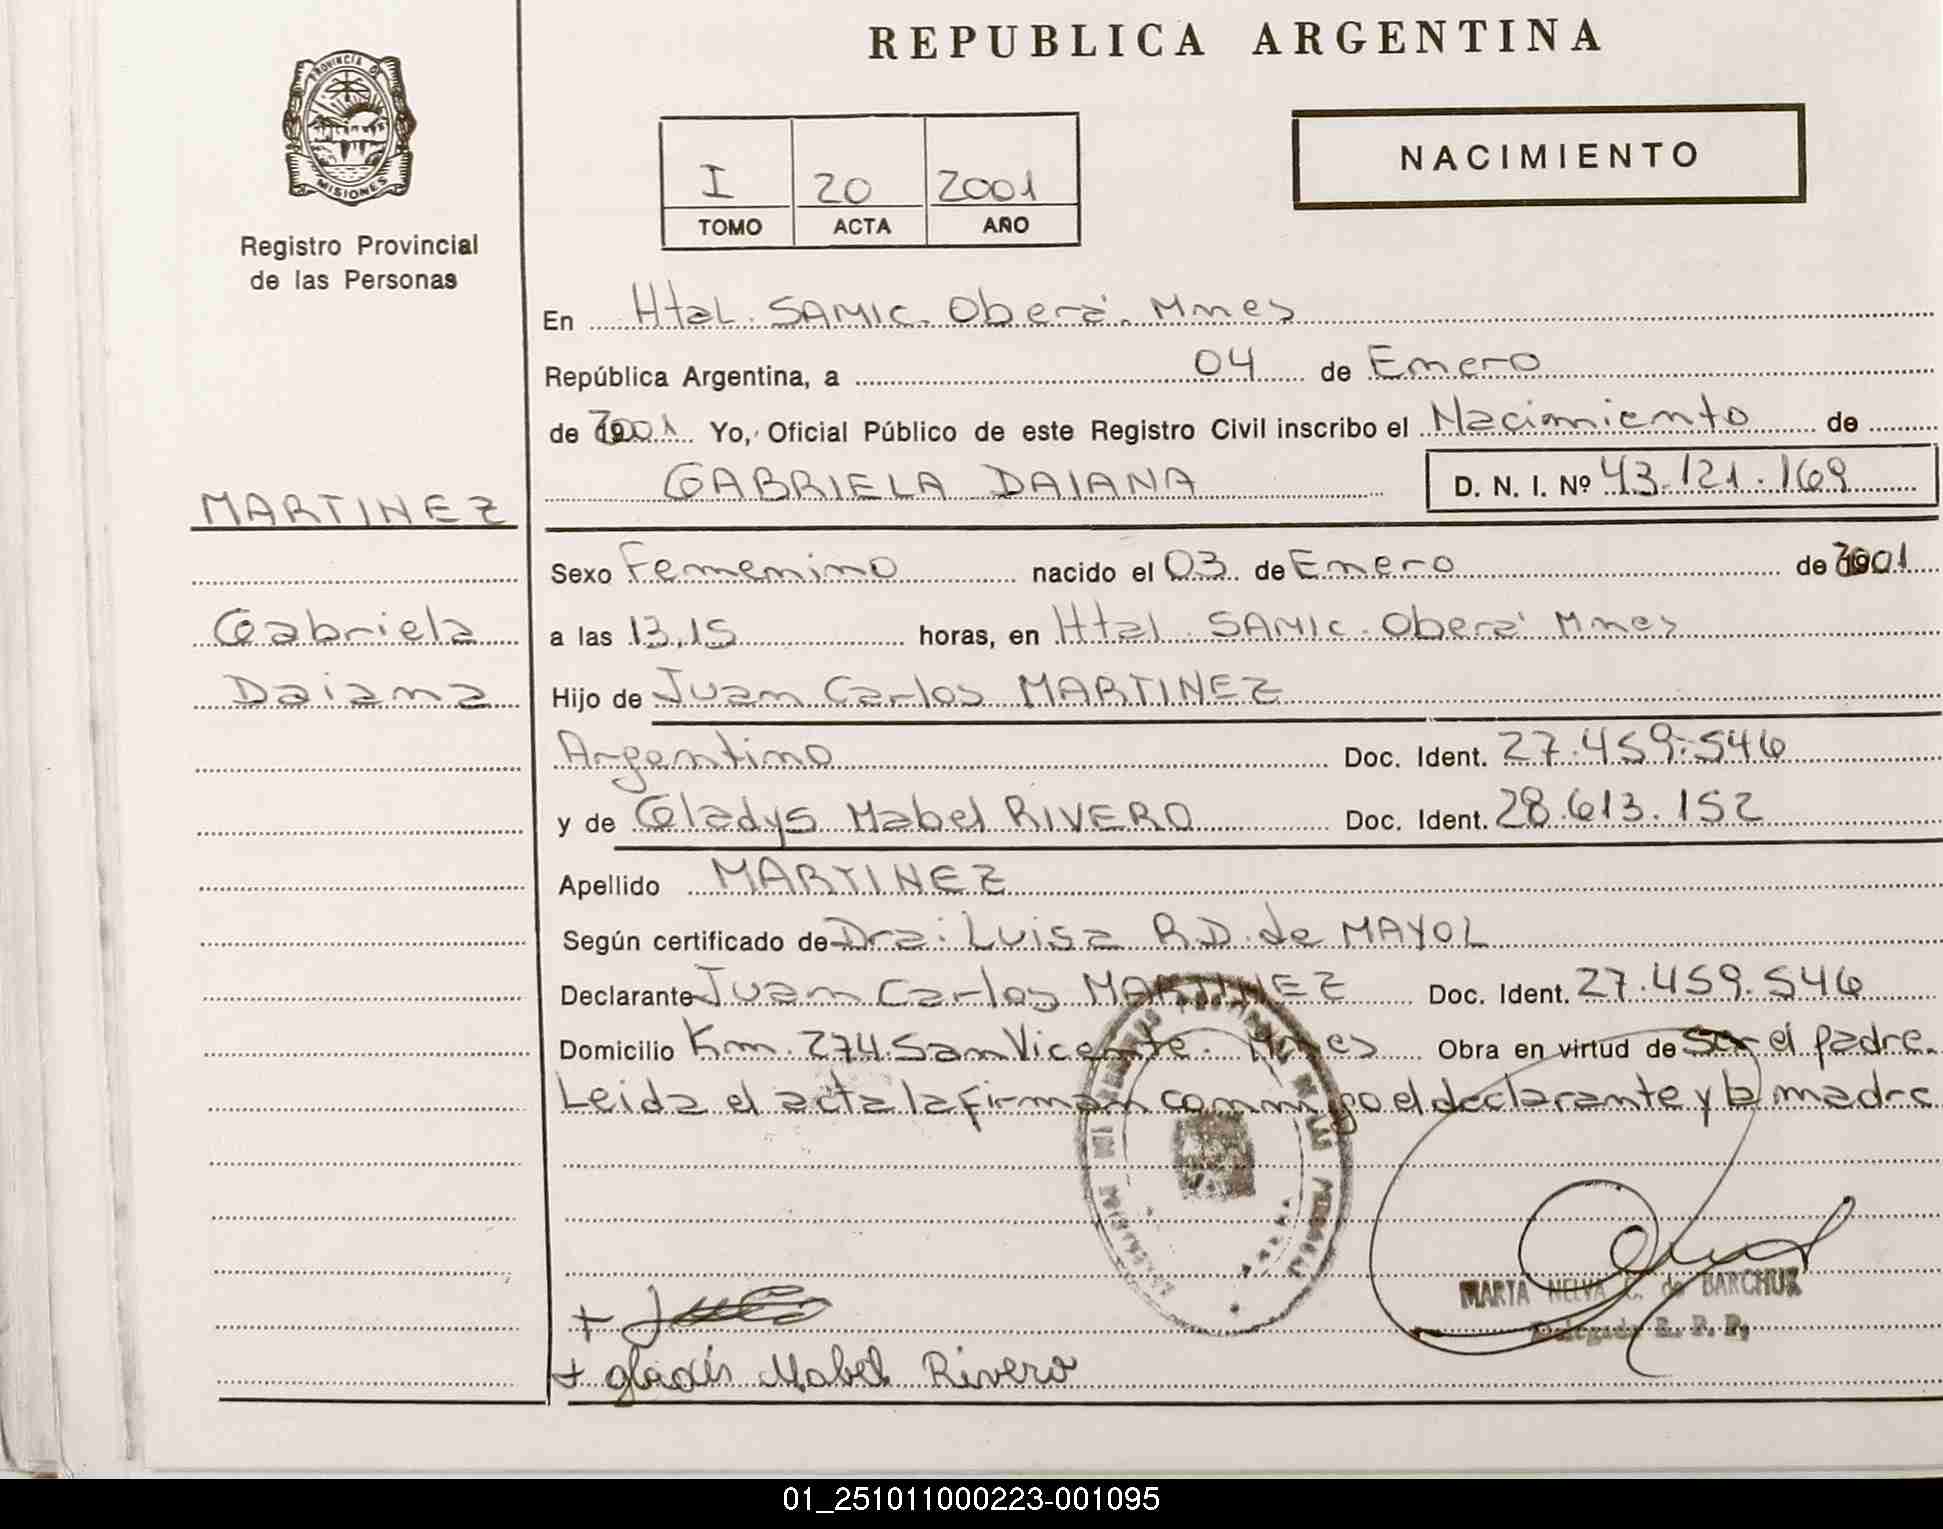 REPUBLICA ARGENTINA
PROVINCIA D
MISIONES
Registro Provincial
de las Personas
I 20 2001
TOMO ACTA AÑO
NACIMIENTO
En Htal. SAMIC. Oberá. Mnes
República Argentina, a 04 de Enero
de 2001 Yo, Oficial Público de este Registro Civil inscribo el Nacimiento de
GABRIELA DAIANA D. N. I. Nº 43.121.169
MARTINEZ
Sexo Femenino nacido el 03 de Enero de 2001
Gabriela
a las 13,15 horas, en Htal. SAMIC. Oberá Mnes
Daiana
Hijo de Juan Carlos MARTINEZ
Argentino Doc. Ident. 27.459.546
y de Gladys Mabel RIVERO Doc. Ident. 28.613.152
Apellido MARTINEZ
Según certificado de Dra: Luisa R.D. de MAYOL
Declarante Juan Carlos MARTINEZ Doc. Ident. 27.459.546
Domicilio Km. 274. San Vicente. Mnes Obra en virtud de ser el padre.
Leida el acta la firman conmigo el declarante y la madre
MARTA NELVA C. de BARCHUK
Delegada R. P. P.
+ gladis Mabel Rivero
01_251011000223-001095